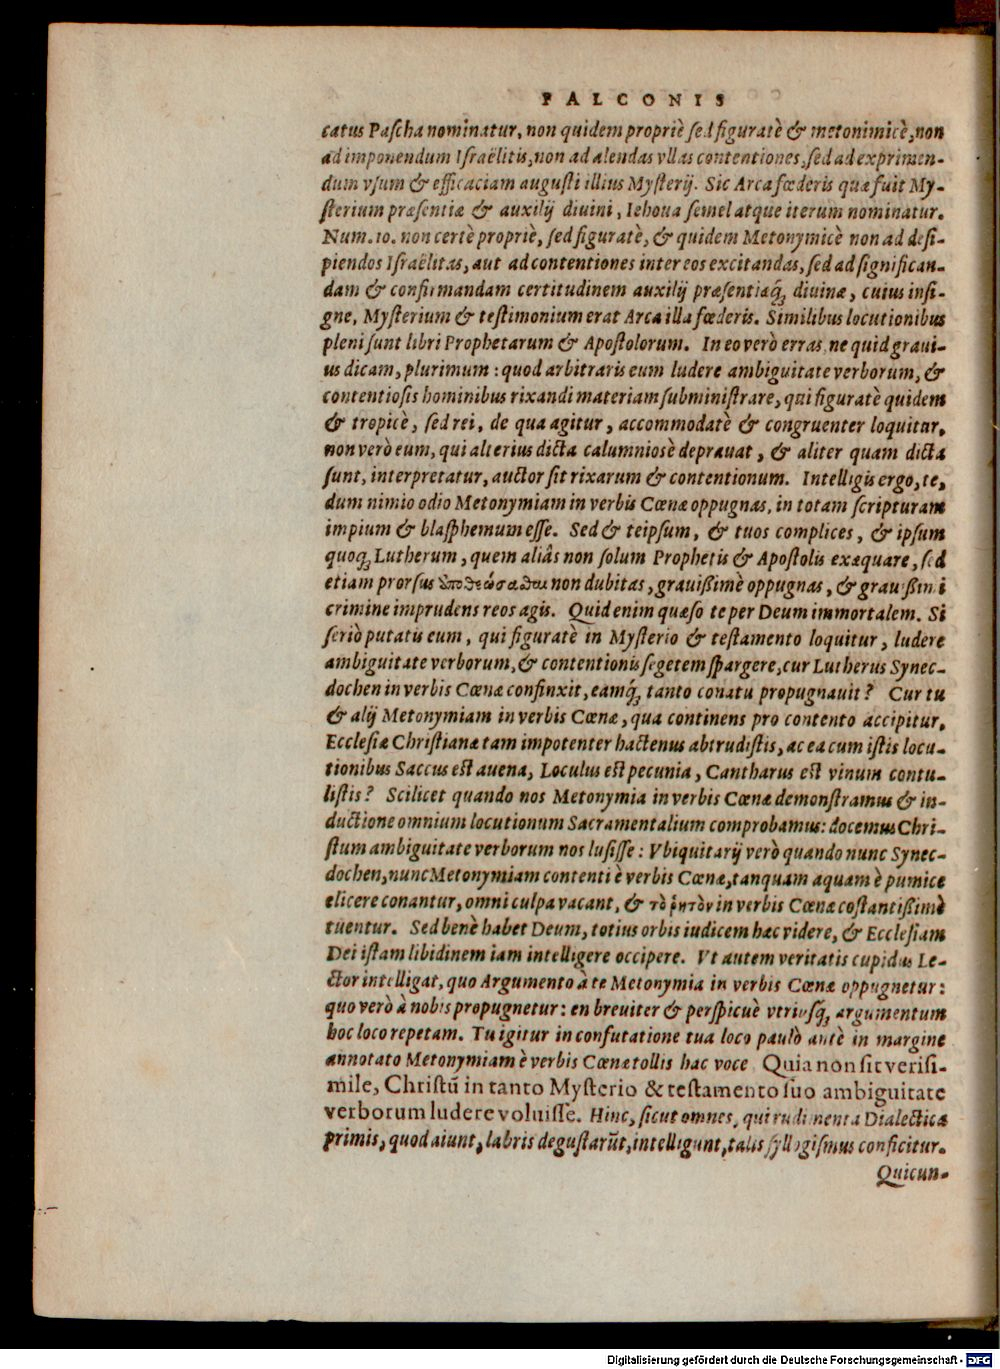 FALCONIS
catus Paſcha nominatur, non quidem propriè ſed figuratè & metonimicè, non
ad imponendum Iſraëlitis, non ad alendas vllas contentiones, ſed ad exprimen-
dum vſum & efficaciam auguſti illius Myſterij. Sic Arca fœderis quæ fuit My-
ſterium præſentiæ & auxilij diuini, Iehoua ſemel atque iterum nominatur.
Num. 10. non certè propriè, ſed figuratè, & quidem Metonymicè non ad deſi-
piendos Iſraëlitas, aut ad contentiones inter eos excitandas, ſed ad ſignifican-
dam & confirmandam certitudinem auxilij præſentiæq́ꝫ diuinæ, cuius inſi-
gne, Myſterium & teſtimonium erat Arca illa fœderis. Similibus locutionibus
pleni ſunt libri Prophetarum & Apoſtolorum. In eo verò erras, ne quid graui-
us dicam, plurimum: quod arbitraris eum ludere ambiguitate verborum, &
contentioſis hominibus rixandi materiam ſubminiſtrare, qui figuratè quidem
& tropicè, ſed rei, de qua agitur, accommodatè & congruenter loquitur,
non verò eum, qui alterius dicta calumnioſè deprauat, & aliter quam dicta
ſunt, interpretatur, auctor ſit rixarum & contentionum. Intelligis ergo, te,
dum nimio odio Metonymiam in verbis Cœnæ oppugnas, in totam ſcripturam
impium & blaſphemum eſſe. Sed & teipſum, & tuos complices, & ipſum
quoqꝫ Lutherum, quem aliâs non ſolum Prophetis & Apoſtolis exæquare, ſed
etiam prorſus ὑποθεώσαθαι non dubitas, grauißimè oppugnas, & grauißimi
crimine imprudens reos agis. Quid enim quæſo te per Deum immortalem. Si
ſeriò putatis eum, qui figuratè in Myſterio & teſtamento loquitur, ludere
ambiguitate verborum, & contentionis ſegetem ſpargere, cur Lutherus Synec-
dochen in verbis Cœnæ confinxit, eamq́ꝫ tanto conatu propugnauit? Cur tu
& alij Metonymiam in verbis Cœnæ, qua continens pro contento accipitur,
Eccleſiæ Chriſtianæ tam impotenter hactenus abtrudiſtis, ac ea cum iſtis locu-
tionibus Saccus eſt auena, Loculus eſt pecunia, Cantharus eſt vinum contu-
liſtis? Scilicet quando nos Metonymia in verbis Cœnæ demonſtramus & in-
ductione omnium locutionum Sacramentalium comprobamus: docemus Chri-
ſtum ambiguitate verborum nos luſiſſe: Vbiquitarij verò quando nunc Synec-
dochen, nunc Metonymiam contenti è verbis Cœnæ, tanquam aquam è pumice
elicere conantur, omni culpa vacant, & τὸ ῥητὸν in verbis Cœnæ coſtantißimè
tuentur. Sed benè habet Deum, totius orbis iudicem hæc videre, & Eccleſiam
Dei iſtam libidinem iam intelligere occipere. Vt autem veritatis cupidus Le-
ctor intelligat, quo Argumento à te Metonymia in verbis Cœnæ oppugnetur:
quo verò à nobis propugnetur: en breuiter & perſpicuè vtriuſqꝫ argumentum
hoc loco repetam. Tu igitur in confutatione tua loco paulò antè in margine
annotato Metonymiam è verbis Cœnæ tollis hac voce Quia non ſit veriſi-
mile, Chriſtū in tanto Myſterio & teſtamento ſuo ambiguitate
verborum ludere voluiſſe. Hinc, ſicut omnes, qui rudimenta Dialecticæ
primis, quod aiunt, labris deguſtarūt, intelligunt, talis ſyllogiſmus conficitur.
Quicun-
Digitalisierung gefördert durch die Deutsche Forschungsgemeinschaft - DFG